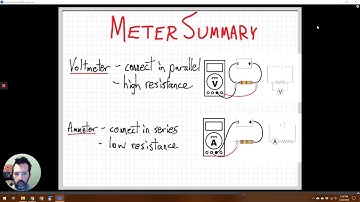 METER SUMMARY
Voltmeter - connect in parallel
- high resistance
V
V
Ammeter - connect in series
- low resistance
A
A